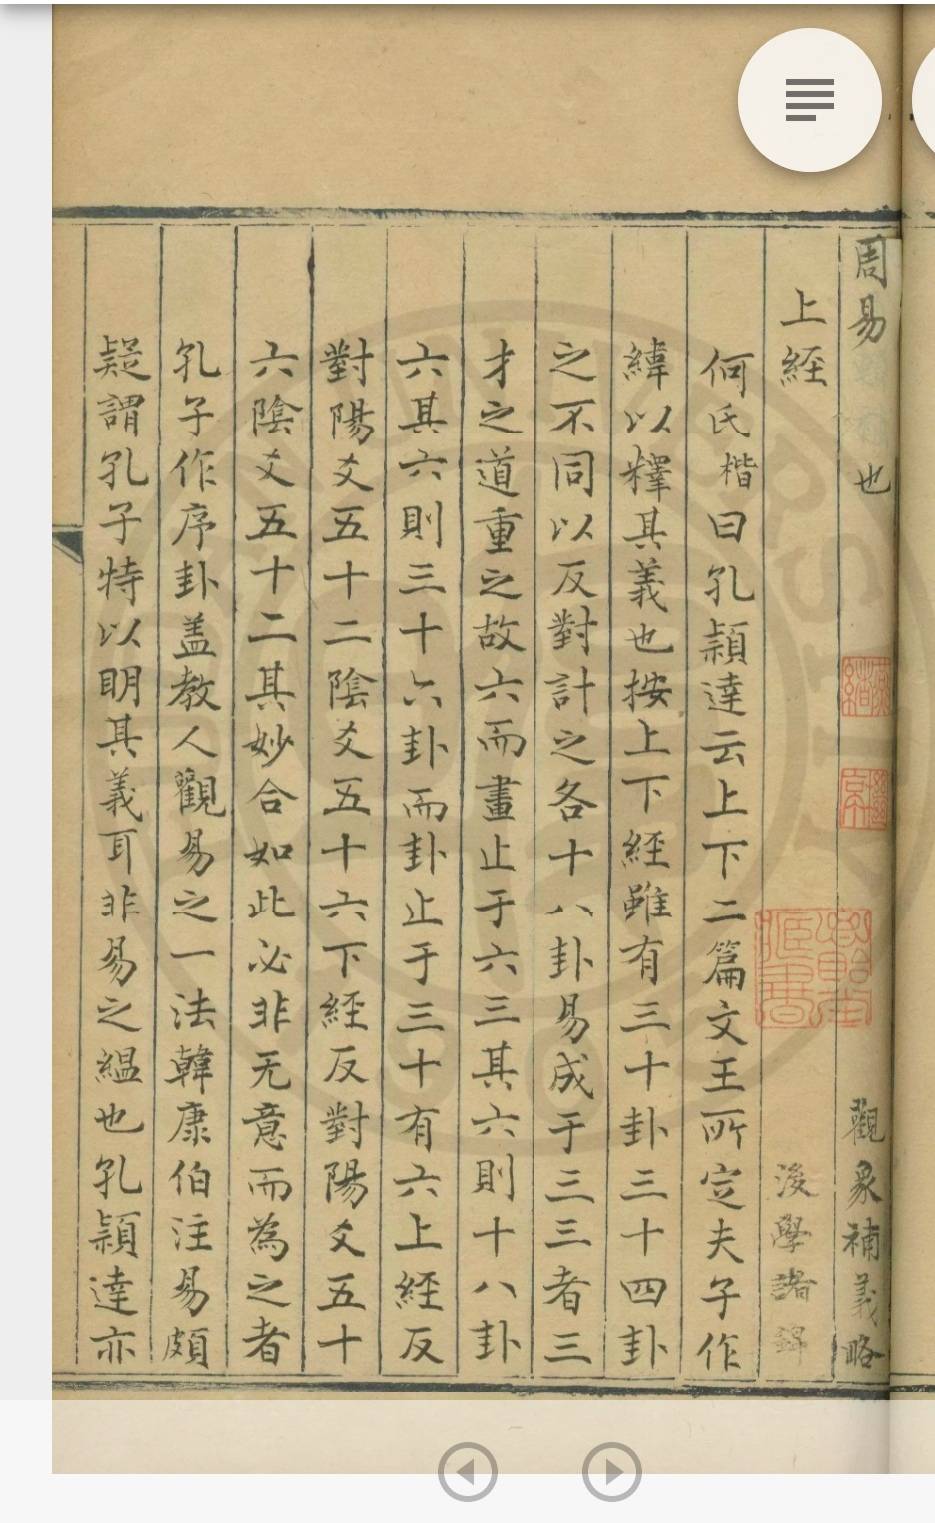 周易 也 觀象補義略
上經 後學諸錦
何氏楷曰孔頴達云上下二篇文王所定夫子作
緯以釋其義也按上下經雖有三十卦三十四卦
之不同以反對計之各十八卦易成于三三者三
才之道重之故六而畫止于六三其六則十八卦
六其六則三十六卦而卦止于三十有六上經反
對陽爻五十二陰爻五十六下經反對陽爻五十
六陰爻五十二其妙合如此必非无意而為之者
孔子作序卦盖教人觀易之一法韓康伯注易頗
疑謂孔子特以明其義耳非易之緼也孔頴達亦